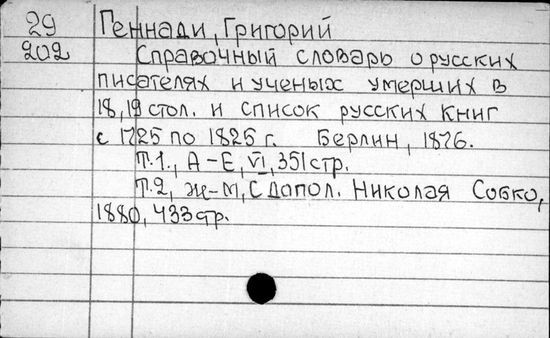 29 Геннади, Григорий
202 Справочный словарь о русских
писателях и ученых умерших в
18, 19 стол. и список русских книг
с 1725 по 1825 г. Берлин, 1876.
Т.1., А-Е, VI, 351 стр.
Т.2, Ж-М, С допол. Николая Собко,
1880, 433 стр.